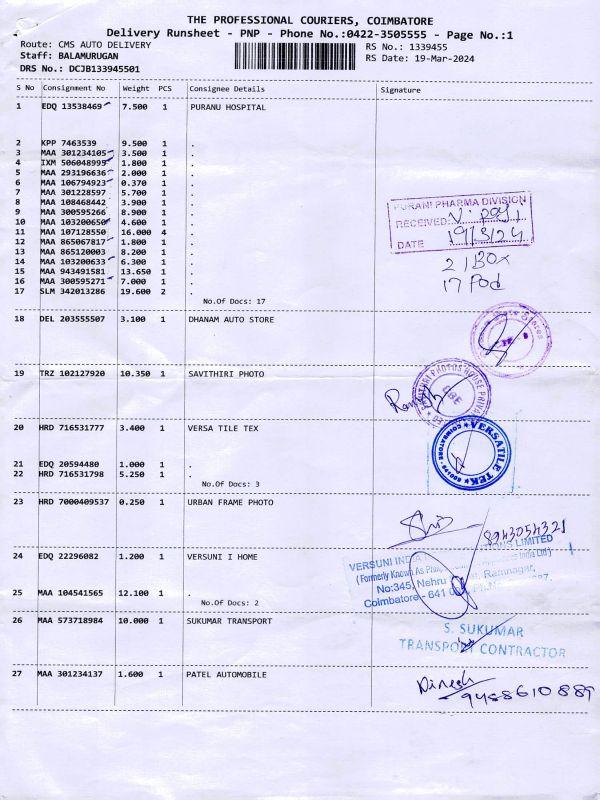 THE PROFESSIONAL COURIERS, COIMBATORE
Delivery Runsheet - PNP - Phone No.:0422-3505555 - Page No.:1
Route: CMS AUTO DELIVERY RS No.: 1339455
Staff: BALAMURUGAN RS Date: 19-Mar-2024
DRS No.: DCJB133945501
S No Consignment No Weight PCS Consignee Details Signature
1 EDQ 13538469 7.500 1 PURANU HOSPITAL
2 KPP 7463539 9.500 1 .
3 MAA 301234105 3.500 1 .
4 IXM 506048995 1.800 1 .
5 MAA 293196636 2.000 1 .
6 MAA 106794923 0.370 1 .
7 MAA 301228597 5.700 1 .
8 MAA 108468442 3.900 1 .
9 MAA 300595266 8.900 1 .
10 MAA 103200650 4.600 1 .
11 MAA 107128550 16.000 4 .
12 MAA 865067817 1.800 1 .
13 MAA 865120003 8.200 1 .
14 MAA 103200633 6.300 1 .
15 MAA 943491581 13.650 1 .
16 MAA 300595271 7.000 1 .
17 SLM 342013286 19.600 2 .
No.Of Docs: 17
PURANI PHARMA DIVISION
RECEIVED:
DATE 19/3/24
21 Box
17 Pod
18 DEL 203555507 3.100 1 DHANAM AUTO STORE
19 TRZ 102127920 10.350 1 SAVITHIRI PHOTO
SAVITHRI PHOTOS HOUSE PRIVA
CBE
20 HRD 716531777 3.400 1 VERSA TILE TEX
21 EDQ 20594480 1.000 1 .
22 HRD 716531798 5.250 1 .
No.Of Docs: 3
VERSATILE TEK
COIMBATORE
23 HRD 7000409537 0.250 1 URBAN FRAME PHOTO
8943054321
24 EDQ 22296082 1.200 1 VERSUNI I HOME
25 MAA 104541565 12.100 1 .
No.Of Docs: 2
VERSUNI INDIA LIMITED
(Formerly Known As India Ltd)
No:345, Nehru Ramnagar,
Coimbatore - 641
26 MAA 573718984 10.000 1 SUKUMAR TRANSPORT
S. SUKUMAR
TRANSPORT CONTRACTOR
27 MAA 301234137 1.600 1 PATEL AUTOMOBILE
Dinesh
9488610889